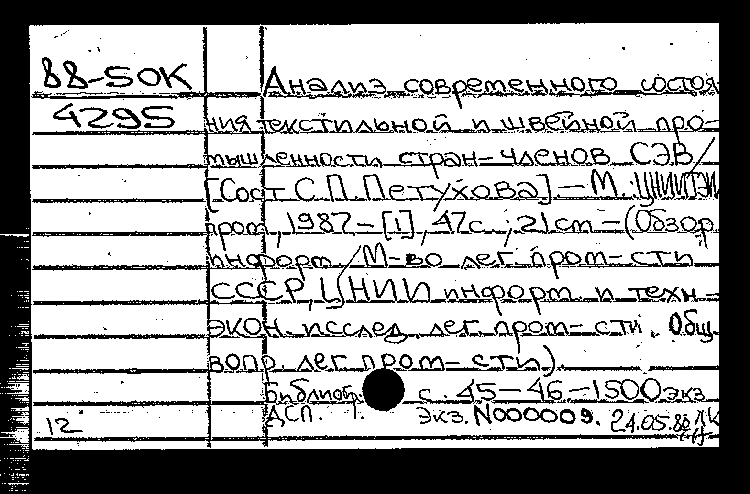 88-5ОК Анализ современного состоя
4295 ния текстильной и швейной про-
мышленности стран-членов СЭВ/
[Сост С.П.Петухова].—М.:ЦНИИТЭИ
пром, 1987-[1], 47с.;21cm-(Обзор
информ. /М-во лег. пром-сти
СССР, ЦНИИ информ. и техн-
экон. исслед. лег. пром-сти. Общ.
вопр. лег. пром-сти).
Библиогр. с. 45-46-1500экз
ДСП. 1. экз. N000009.
12 24.05.88